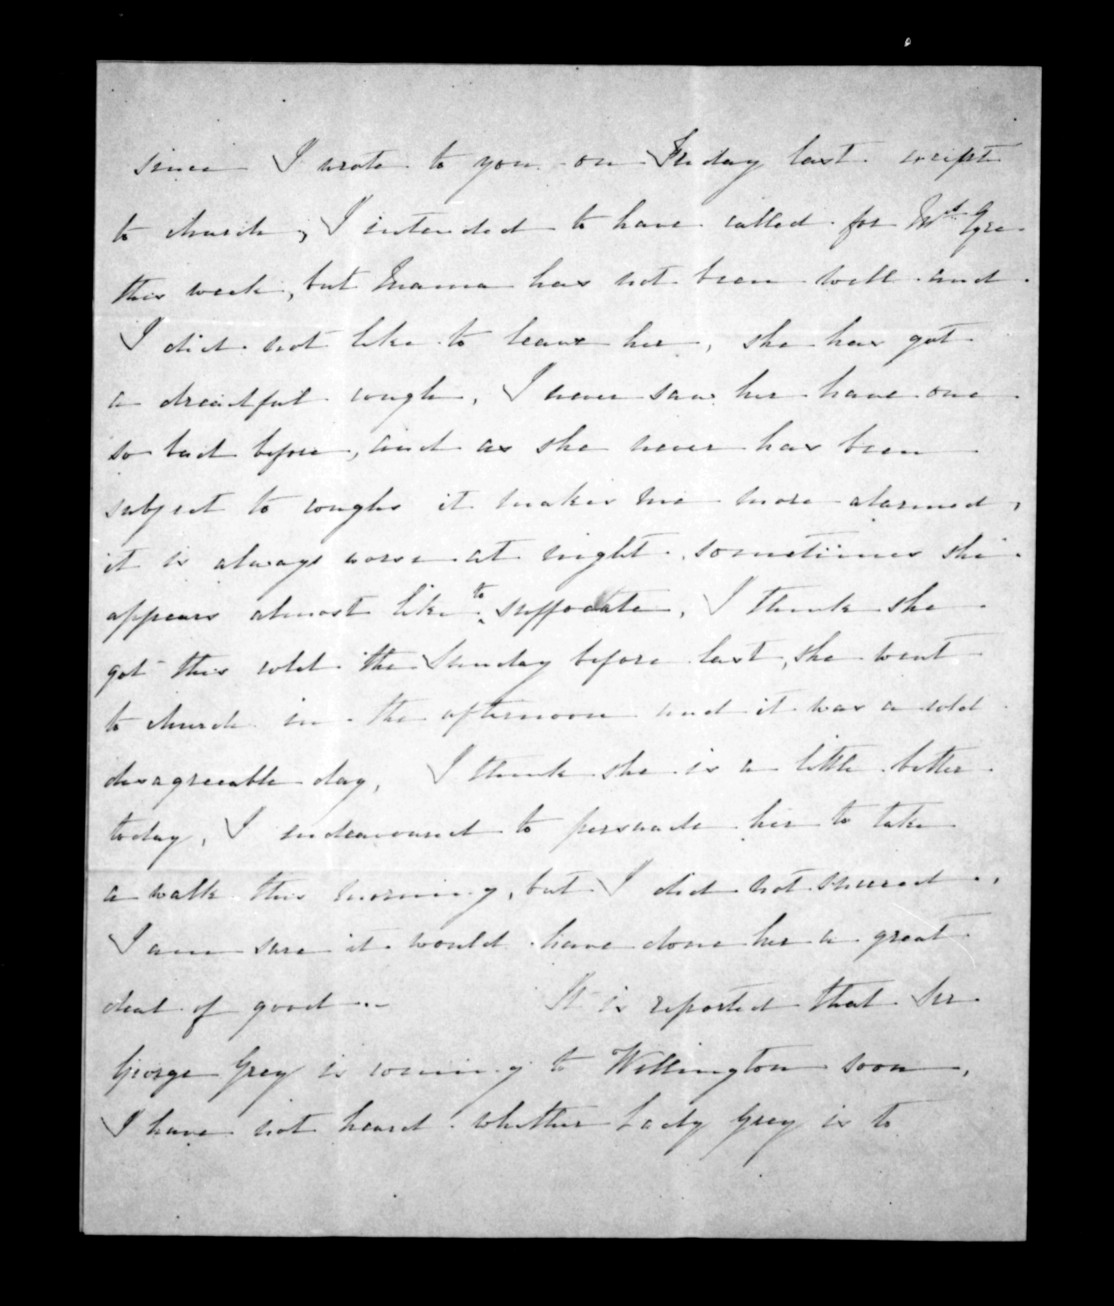 since I wrote to you on Friday last except
to church, I intended to have called for Mrs
this week, but Mama has not been well and
I did not like to leave her, she has got
a dreadful cough, I never saw her have one
so bad before, and as she never has been
subject to coughs it makes me more alarmed,
it is always worse at night sometimes she
appears almost like to suffocate, I think she
got this cold the Sunday before last, she went
to church in the afternoon and it was a cold
disagreeable day, I think she is a little better
today, I endeavoured to persuade her to take
a walk this morning, but I did not succeed.,
I am sure it would have done her a great
deal of good.- It is reported that Sir
George Grey is coming to Wellington soon,
I have not heard whether Lady Grey is to